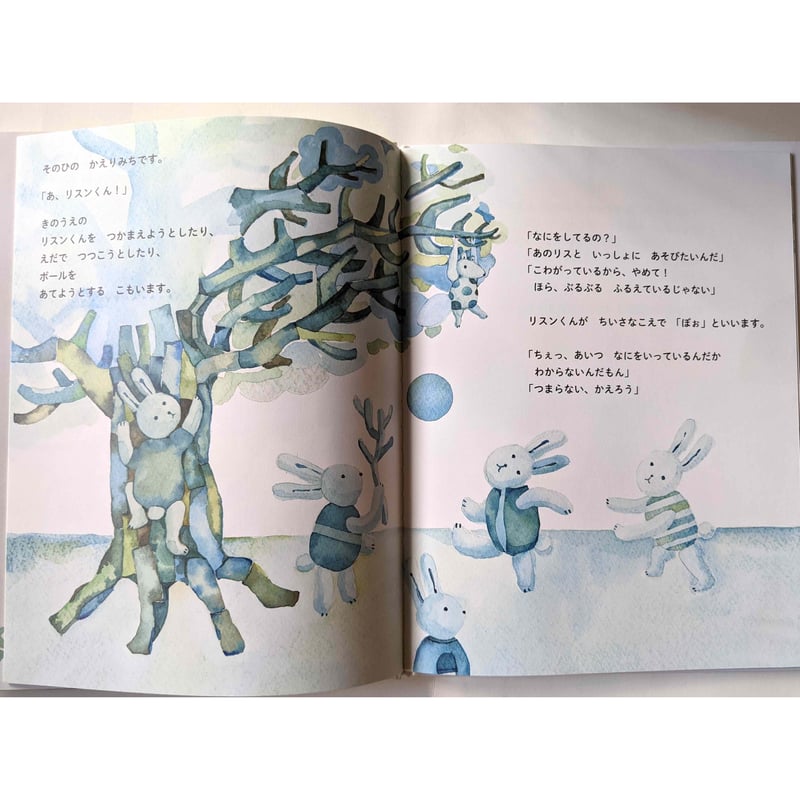 そのひの　かえりみちです。
「あ、リスンくん！」
きのうえの
リスンくんを　つかまえようとしたり、
えだで　つつこうとしたり、
ボールを
あてようとする　こもいます。
「なにをしてるの？」
「あのリスと　いっしょに　あそびたいんだ」
「こわがっているから、やめて！
ほら、ぶるぶる　ふるえているじゃない」
リスンくんが　ちいさなこえで　「ぽぉ」といいます。
「ちぇっ、あいつ　なにをいっているんだか
わからないんだもん」
「つまらない、かえろう」